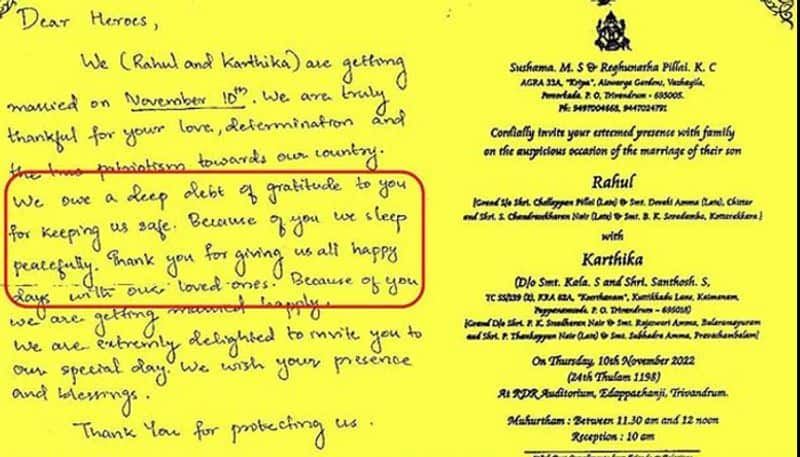 Dear Heroes,
We (Rahul and Karthika) are getting
married on November 10th. We are truly
thankful for your love, determination and
the true patriotism towards our country.
We owe a deep debt of gratitude to you
for keeping us safe. Because of you we sleep
peacefully. Thank you for giving us all happy
days with our loved ones. Because of you
we are getting married happily.
We are extremely delighted to invite you to
our special day. We wish your presence
and blessings.
Thank You for protecting us.
Sushama. M. S & Reghunatha Pillai. K. C
AGRA 33A, "Kripa", Gardens, Vazhayila,
Peroorkada. P. O, Trivandrum - 695005.
Ph: 9497004668, 9447024791
Cordially invite your esteemed presence with family
on the auspicious occasion of the marriage of their son
Rahul
(Grand S/o Shri. Chellappan Pillai (Late) & Smt. Devaki Amma (Late), Chittar
and Shri. S. Chandrasekharan Nair (Late) & Smt. B. K. Kottarakkara.)
with
Karthika
(D/o Smt. Kala. S and Shri. Santhosh. S,
TC 55/339 (2), KRA 62A, Kuttikkadu Lane, Kaimanam,
Pappanamcode. P. O, Trivandrum - 695018)
(Grand D/o Shri. P. K. Sreedharan Nair & Smt. Rajeswari Amma, Balaramapuram
and Shri. P. Thankappan Nair (Late) & Smt. Subhadra Amma, Pravachambalam)
On Thursday, 10th November 2022
(24th Thulam 1198)
At RDR Auditorium, Edappazhanji, Trivandrum.
Muhurtham : Between 11.30 am and 12 noon
Reception : 10 am